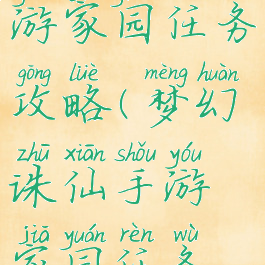 游家园任务
gōng lüè mèng huàn
攻略(梦幻
zhū xiān shǒu yóu
诛仙手游
jiā yuán rèn wù
家园任务